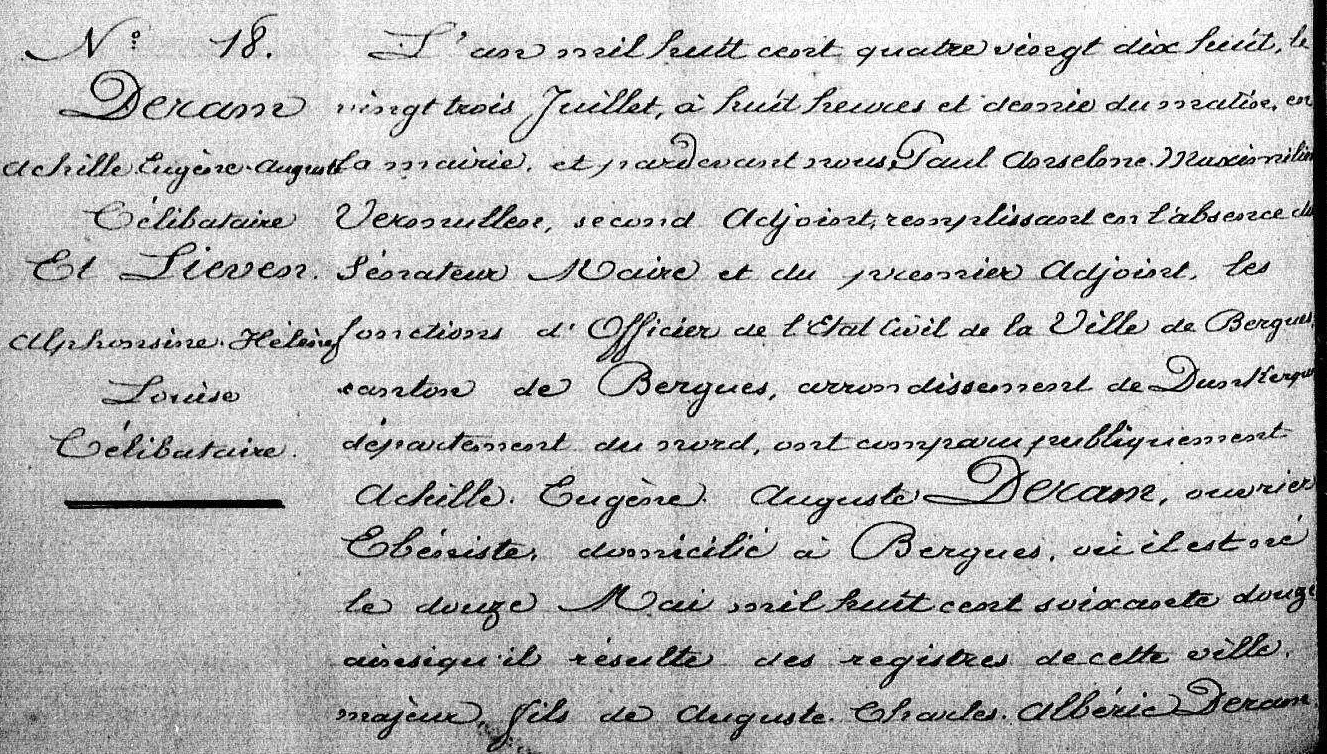 N° 18.
Deram
Achille Eugène Auguste
Célibataire
Et Lieven.
Alphonsine Hélène
Louise
Célibataire.
L'an mil huit cent quatre vingt dix huit, le
vingt trois Juillet, à huit heures et demie du matin, en
la mairie, et pardevant nous, Paul Anselone Maximilien
second Adjoint, remplissant en l'absence du
Sénateur Maire et du premier Adjoint, les
fonctions d'Officier de l'Etat Civil de la Ville de Bergues,
canton de Bergues, arrondissement de Dunkerque
département du nord, ont comparu publiquement
Achille. Eugène. Auguste Deram, ouvrier
Ebéniste, domicilié à Bergues, où il est né
le douze Mai mil huit cent soixante douze
ainsi qu'il résulte des registres de cette ville.
majeur, fils de Auguste. Charles. Albéric Deram